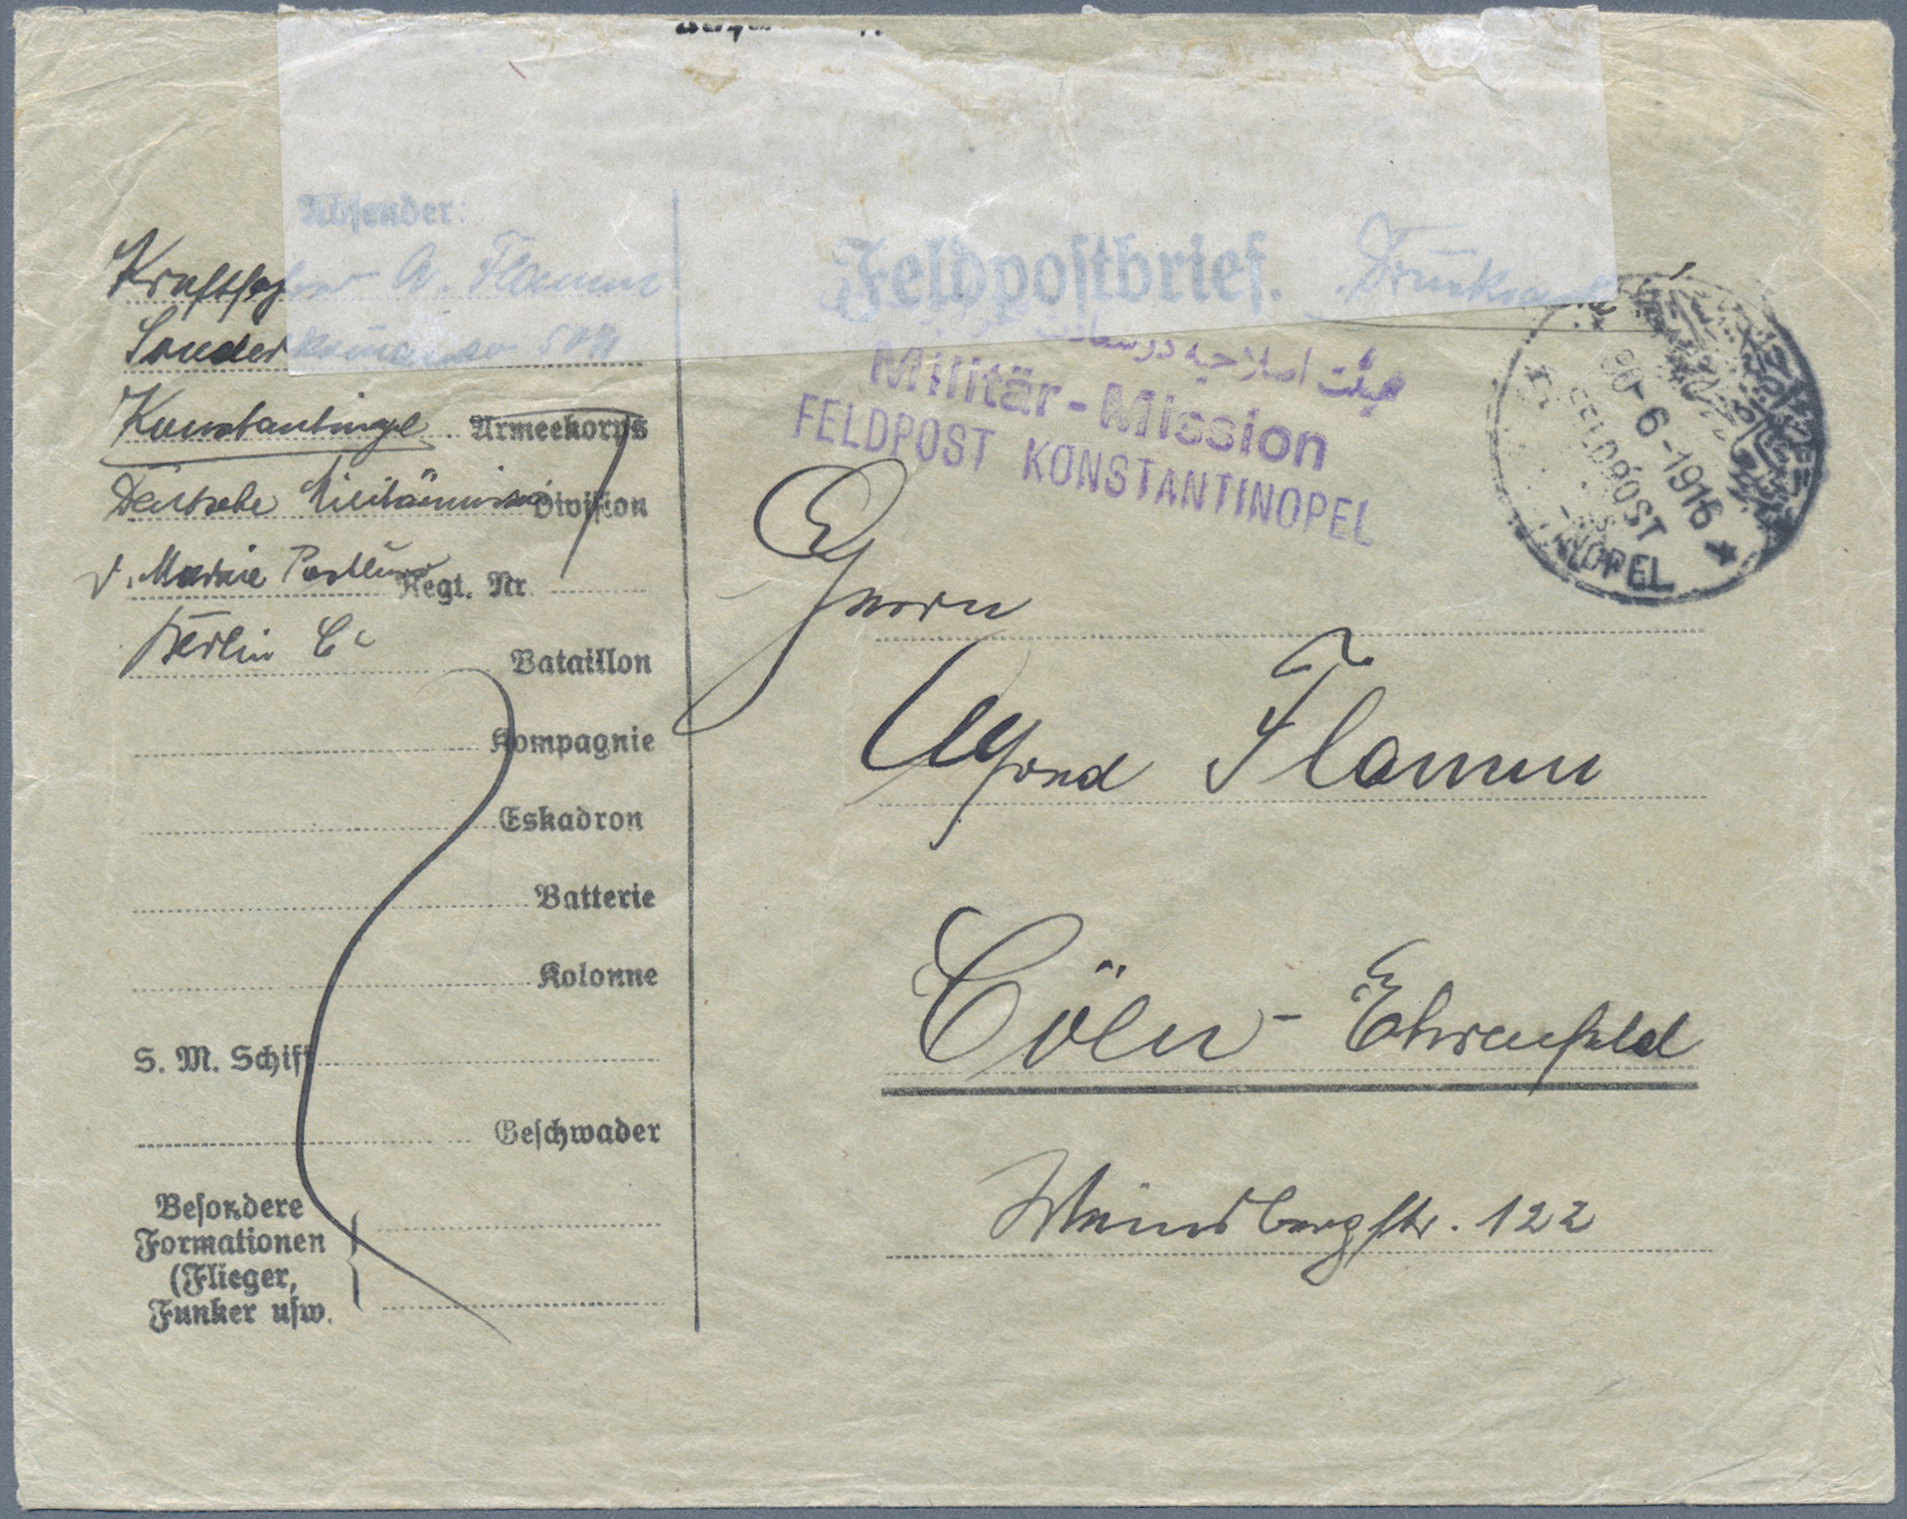 Absender:
Kraftfahrer A. Flamm
Sonderkommando
Konstantinopel Armeekorps
Deutsche Militärmission Division
Marine Regt. Nr.
Berlin C² Bataillon
Kompagnie
Eskadron
Batterie
Kolonne
S. M. Schiff
Geschwader
Besondere
Formationen
(Flieger,
Funker usw.
Feldpostbrief. Drucksache
هيئت اصلاحيه در سعادت
Militär-Mission
FELDPOST KONSTANTINOPEL
30-6-1916
FELDPOST
NOPEL
Herrn
Alfred Flamm
Cöln - Ehrenfeld
Weinsbergstr. 122